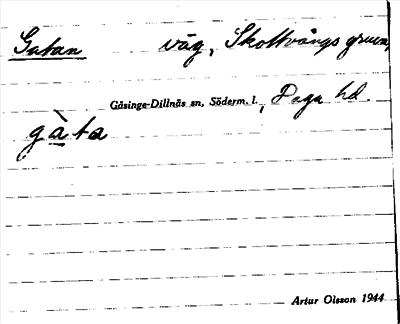 Gatan väg, Skottvångs gruva,
Gåsinge-Dillnäs sn, Söderm. l., Daga hd
gàta
Artur Olsson 1944